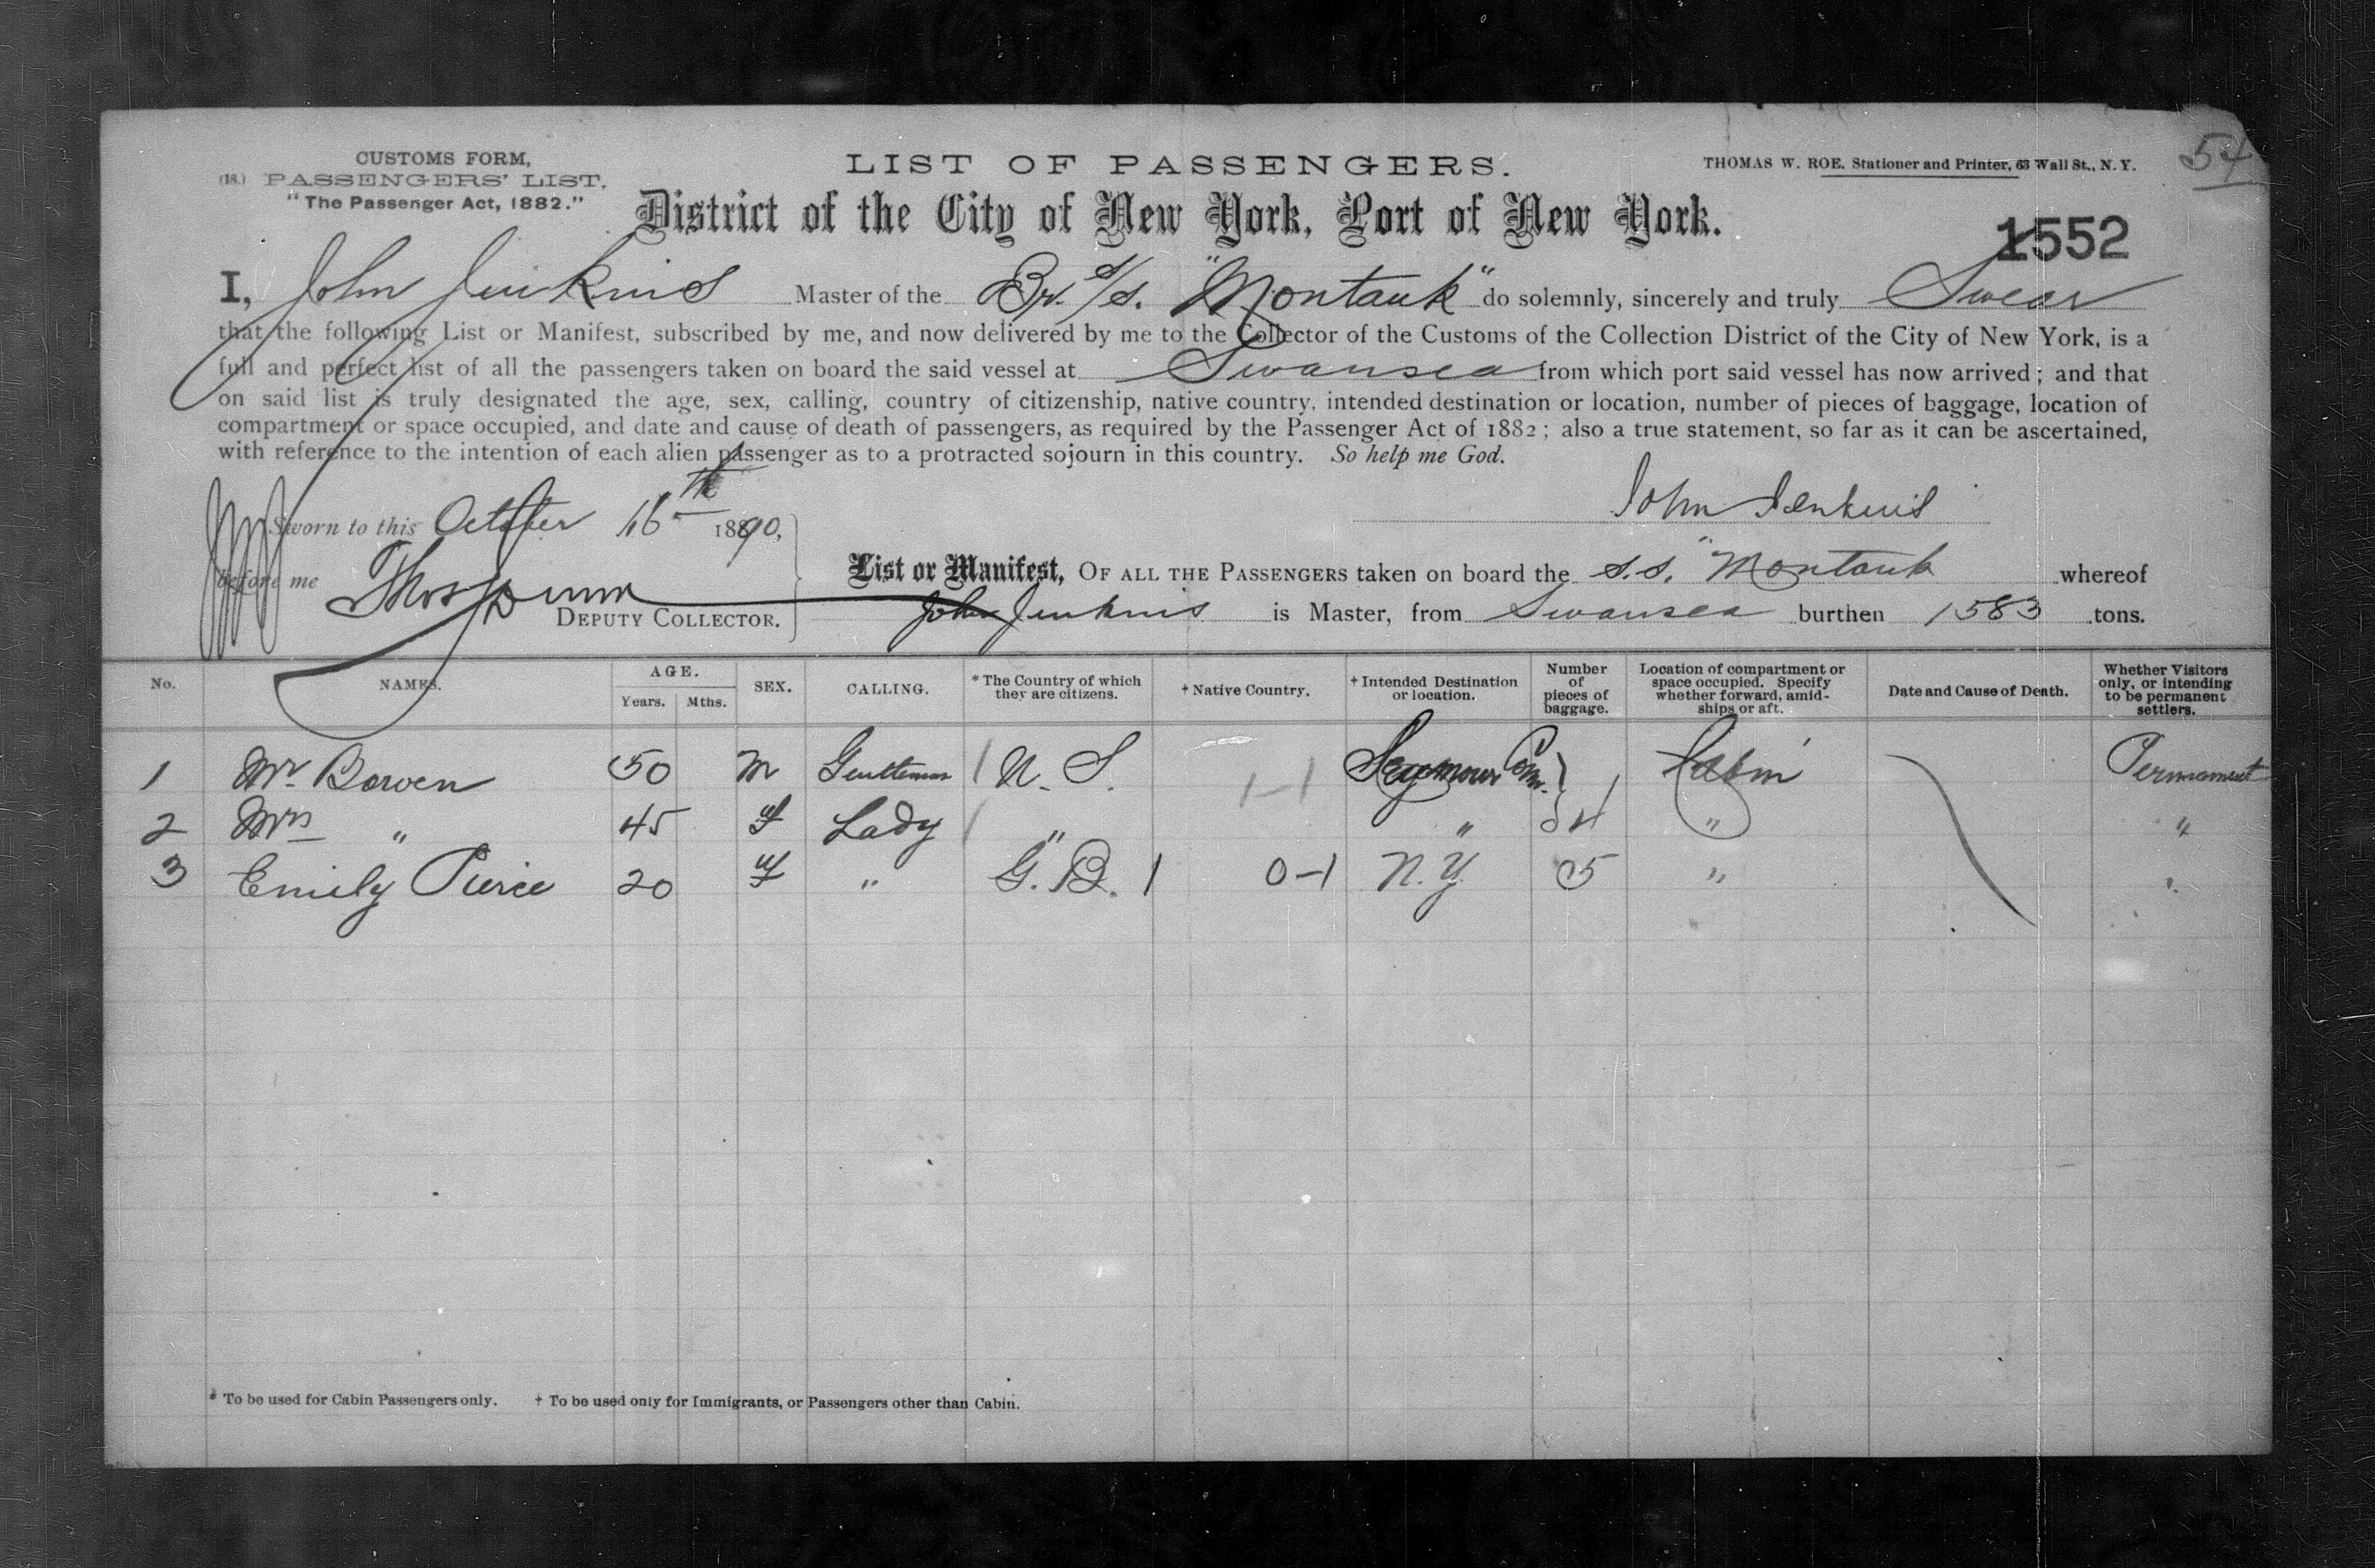 54
CUSTOMS FORM,
(18.) PASSENGERS' LIST,
"The Passenger Act, 1882."
LIST OF PASSENGERS.
THOMAS W. ROE, Stationer and Printer, 63 Wall St., N. Y.
District of the City of New York, Port of New York.
1552
I, John Jenkins Master of the Br. s/s. "Montauk" do solemnly, sincerely and truly Swear
that the following List or Manifest, subscribed by me, and now delivered by me to the Collector of the Customs of the Collection District of the City of New York, is a
full and perfect list of all the passengers taken on board the said vessel at Swansea from which port said vessel has now arrived; and that
on said list is truly designated the age, sex, calling, country of citizenship, native country, intended destination or location, number of pieces of baggage, location of
compartment or space occupied, and date and cause of death of passengers, as required by the Passenger Act of 1882; also a true statement, so far as it can be ascertained,
with reference to the intention of each alien passenger as to a protracted sojourn in this country. So help me God.
John Jenkins
Sworn to this October 16th 1890,
before me Thos Dunn
DEPUTY COLLECTOR.
List or Manifest, OF ALL THE PASSENGERS taken on board the S.S. "Montauk whereof
John Jenkins is Master, from Swansea burthen 1583 tons.
No. NAMES. AGE. Years. Mths. SEX. CALLING. * The Country of which they are citizens. † Native Country. † Intended Destination or location. Number of pieces of baggage. Location of compartment or space occupied. Specify whether forward, amidships or aft. Date and Cause of Death. Whether Visitors only, or intending to be permanent settlers.
1 Mr. Bowen 50 M Gentleman / U. S. 1-1 Seymour Conn. Cabin Permanent
2 Mrs " 45 f Lady / " " 4 " "
3 Emily Pierce 20 f " G. B. 1 0-1 N. Y. 5 " "
* To be used for Cabin Passengers only. † To be used only for Immigrants, or Passengers other than Cabin.